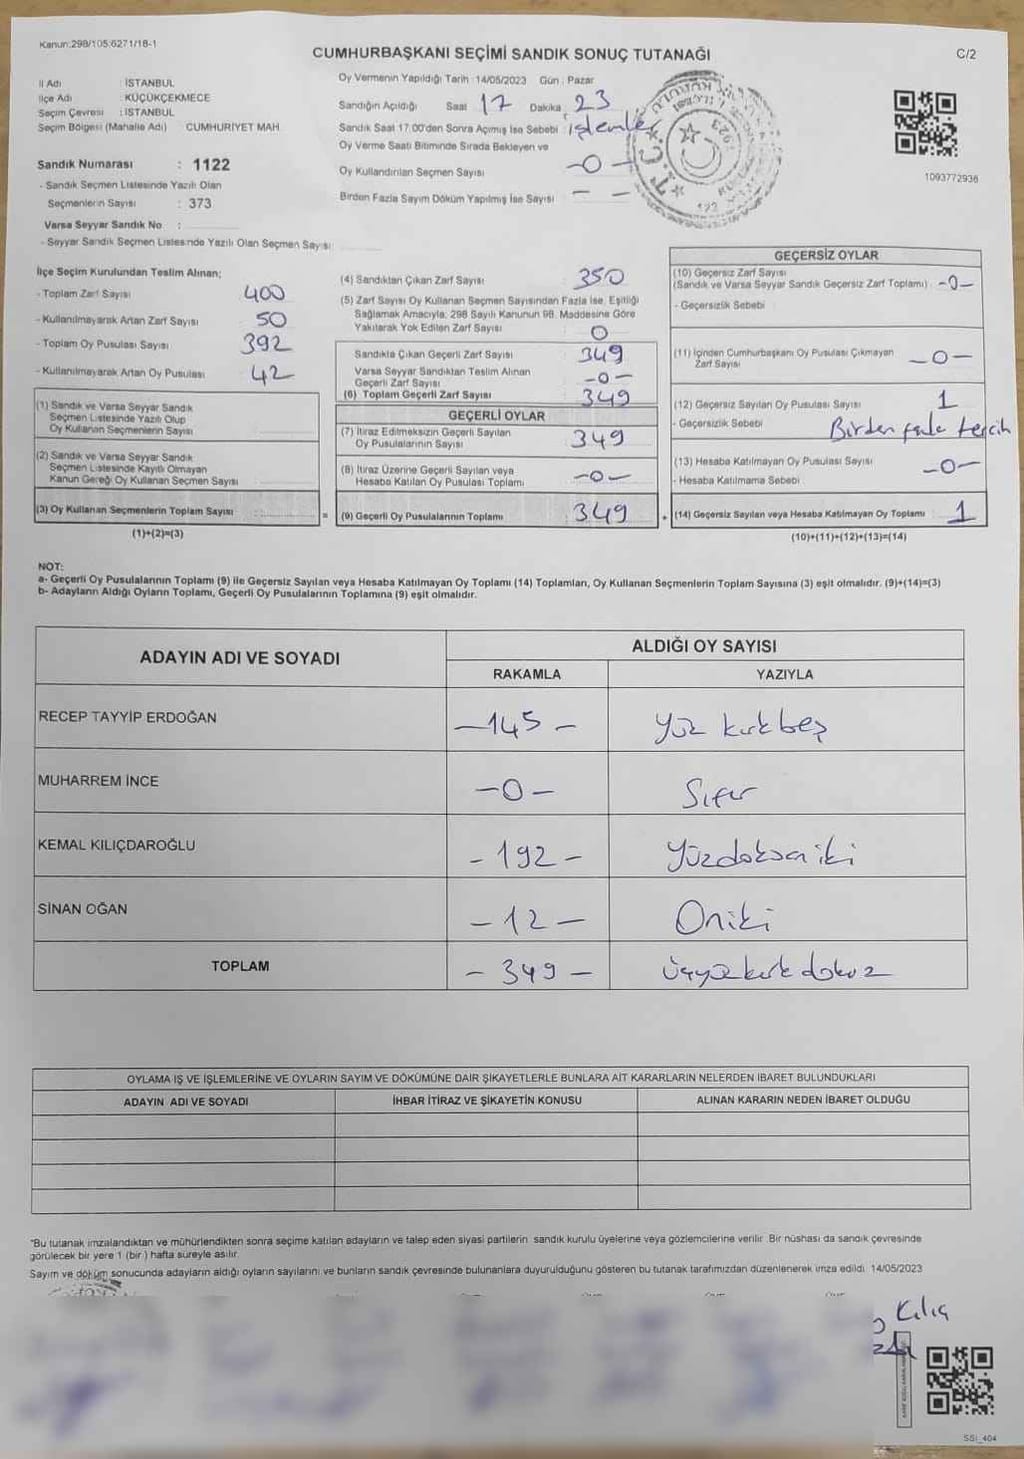 Kanun:298/105:6271/18-1
CUMHURBAŞKANI SEÇİMİ SANDIK SONUÇ TUTANAĞI
C/2
İl Adı : İSTANBUL
İlçe Adı : KÜÇÜKÇEKMECE
Seçim Çevresi : İSTANBUL
Seçim Bölgesi (Mahalle Adı) CUMHURİYET MAH.
Sandık Numarası : 1122
- Sandık Seçmen Listesinde Yazılı Olan
Seçmenlerin Sayısı : 373
Varsa Seyyar Sandık No :
- Seyyar Sandık Seçmen Listesinde Yazılı Olan Seçmen Sayısı
Oy Vermenin Yapıldığı Tarih : 14/05/2023 Gün : Pazar
Sandığın Açıldığı Saat 17 Dakika 23
Sandık Saat 17:00'den Sonra Açılmış İse Sebebi : işlemler
Oy Verme Saati Bitiminde Sırada Bekleyen ve
Oy Kullandırılan Seçmen Sayısı -0-
Birden Fazla Sayım Döküm Yapılmış İse Sayısı - -
T.C.
1093772936
İlçe Seçim Kurulundan Teslim Alınan;
- Toplam Zarf Sayısı 400
- Kullanılmayarak Artan Zarf Sayısı 50
- Toplam Oy Pusulası Sayısı 392
- Kullanılmayarak Artan Oy Pusulası 42
(1) Sandık ve Varsa Seyyar Sandık
Seçmen Listesinde Yazılı Olup
Oy Kullanan Seçmenlerin Sayısı
(2) Sandık ve Varsa Seyyar Sandık
Seçmen Listesinde Kayıtlı Olmayan
Kanun Gereği Oy Kullanan Seçmen Sayısı
(3) Oy Kullanan Seçmenlerin Toplam Sayısı =
(1)+(2)=(3)
(4) Sandıktan Çıkan Zarf Sayısı : 350
(5) Zarf Sayısı Oy Kullanan Seçmen Sayısından Fazla İse, Eşitliği
Sağlamak Amacıyla; 298 Sayılı Kanunun 98. Maddesine Göre
Yakılarak Yok Edilen Zarf Sayısı : 0
Sandıkta Çıkan Geçerli Zarf Sayısı : 349
Varsa Seyyar Sandıktan Teslim Alınan
Geçerli Zarf Sayısı -0-
(6) Toplam Geçerli Zarf Sayısı : 349
GEÇERLİ OYLAR
(7) İtiraz Edilmeksizin Geçerli Sayılan
Oy Pusulalarının Sayısı 349
(8) İtiraz Üzerine Geçerli Sayılan veya
Hesaba Katılan Oy Pusulası Toplamı -0-
(9) Geçerli Oy Pusulalarının Toplamı : 349 +
GEÇERSİZ OYLAR
(10) Geçersiz Zarf Sayısı
(Sandık ve Varsa Seyyar Sandık Geçersiz Zarf Toplamı) : -0-
- Geçersizlik Sebebi
(11) İçinden Cumhurbaşkanı Oy Pusulası Çıkmayan
Zarf Sayısı -0-
(12) Geçersiz Sayılan Oy Pusulası Sayısı 1
- Geçersizlik Sebebi Birden fazla tercih
(13) Hesaba Katılmayan Oy Pusulası Sayısı -0-
- Hesaba Katılmama Sebebi
(14) Geçersiz Sayılan veya Hesaba Katılmayan Oy Toplamı 1
(10)+(11)+(12)+(13)=(14)
NOT:
a- Geçerli Oy Pusulalarının Toplamı (9) ile Geçersiz Sayılan veya Hesaba Katılmayan Oy Toplamı (14) Toplamları, Oy Kullanan Seçmenlerin Toplam Sayısına (3) eşit olmalıdır. (9)+(14)=(3)
b- Adayların Aldığı Oyların Toplamı, Geçerli Oy Pusulalarının Toplamına (9) eşit olmalıdır.
ADAYIN ADI VE SOYADI
ALDIĞI OY SAYISI
RAKAMLA YAZIYLA
RECEP TAYYİP ERDOĞAN -145- Yüz kırkbeş
MUHARREM İNCE -0- Sıfır
KEMAL KILIÇDAROĞLU -192- Yüzdoksaniki
SİNAN OĞAN -12- Oniki
TOPLAM -349- üçyüzkırkdokuz
OYLAMA İŞ VE İŞLEMLERİNE VE OYLARIN SAYIM VE DÖKÜMÜNE DAİR ŞİKAYETLERLE BUNLARA AİT KARARLARIN NELERDEN İBARET BULUNDUKLARI
ADAYIN ADI VE SOYADI İHBAR İTİRAZ VE ŞİKAYETİN KONUSU ALINAN KARARIN NEDEN İBARET OLDUĞU
"Bu tutanak imzalandıktan ve mühürlendikten sonra seçime katılan adayların ve talep eden siyasi partilerin sandık kurulu üyelerine veya gözlemcilerine verilir. Bir nüshası da sandık çevresinde
görülecek bir yere 1 (bir) hafta süreyle asılır.
Sayım ve döküm sonucunda adayların aldığı oyların sayılarını ve bunların sandık çevresinde bulunanlara duyurulduğunu gösteren bu tutanak tarafımızdan düzenlenerek imza edildi. 14/05/2023
Kılıç
SSİ_404